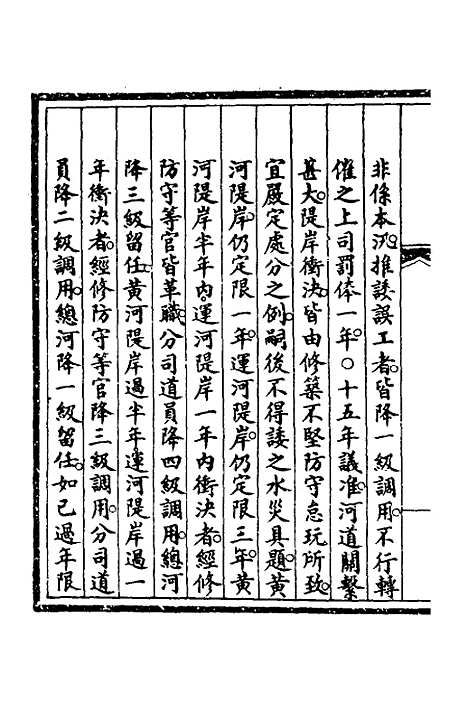 非係本汛推諉誤工者皆降一級調用不行轉
催之上司罰俸一年○十五年議准河道關繫
甚大隄岸衝決皆由修築不堅防守怠玩所致
宜嚴定處分之例嗣後不得諉之水災具題黄
河隄岸仍定限一年運河隄岸仍定限三年黄
河隄岸半年内運河隄岸一年内衝決者經修
防守等官皆革職分司道員降四級調用總河
降三級留任黄河隄岸過半年運河隄岸過一
年衝決者經修防守等官降三級調用分司道
員降二級調用總河降一級留任如已過年限